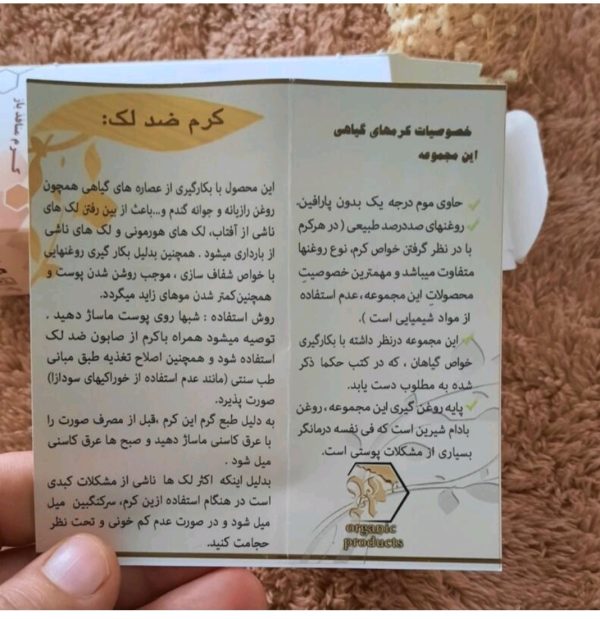 خصوصیات کرمهای گیاهی
این مجموعه
حاوی موم درجه یک بدون پارافین.
روغنهای صددرصد طبیعی ( در هرکرم
با در نظر گرفتن خواص کرم، نوع روغنها
متفاوت میباشد و مهمترین خصوصیت
محصولات این مجموعه، عدم استفاده
از مواد شیمیایی است ).
این مجموعه درنظر داشته با بکارگیری
خواص گیاهان ، که در کتب حکما ذکر
شده به مطلوب دست یابد.
پایه روغن گیری این مجموعه ، روغن
بادام شیرین است که فی نفسه درمانگر
بسیاری از مشکلات پوستی است.
organic
products
کرم ضد لک:
این محصول با بکارگیری از عصاره های گیاهی همچون
روغن رازیانه و جوانه گندم و...باعث از بین رفتن لک های
ناشی از آفتاب، لک های هورمونی و لک های ناشی
از بارداری میشود . همچنین بدلیل بکار گیری روغنهایی
با خواص شفاف سازی ، موجب روشن شدن پوست و
همچنین کمتر شدن موهای زاید میگردد.
روش استفاده : شبها روی پوست ماساژ دهید .
توصیه میشود همراه باکرم از صابون ضد لک
استفاده شود و همچنین اصلاح تغذیه طبق مبانی
طب سنتی (مانند عدم استفاده از خوراکیهای سودازا)
صورت پذیرد.
به دلیل طبع گرم این کرم ،قبل از مصرف صورت را
با عرق کاسنی ماساژ دهید و صبح ها عرق کاسنی
میل شود .
بدلیل اینکه اکثر لک ها ناشی از مشکلات کبدی
است در هنگام استفاده ازین کرم، سرکنگبین میل
میل شود و در صورت عدم کم خونی و تحت نظر
حجامت کنید.
کرم منافذ باز